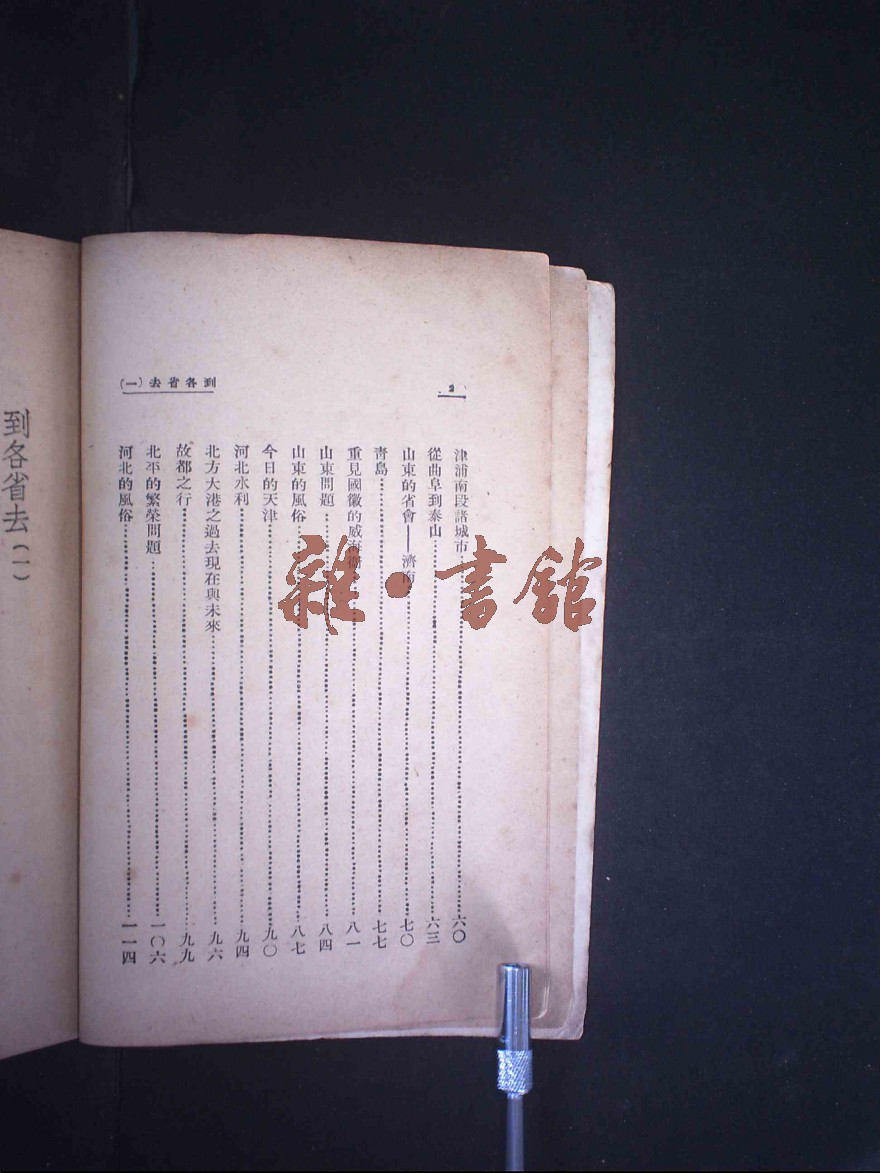 到各省去(一)
2
津浦南段諸城市……六〇
從曲阜到泰山……六三
山東的省會——濟南……七〇
青島……七七
重見國徽的威海衛……八一
山東問題……八四
山東的風俗……八七
今日的天津……九〇
河北水利……九四
北方大港之過去現在與未來……九六
故都之行……九九
北平的繁榮問題……一〇六
河北的風俗……一一四
到各省去(一)
雜·書館